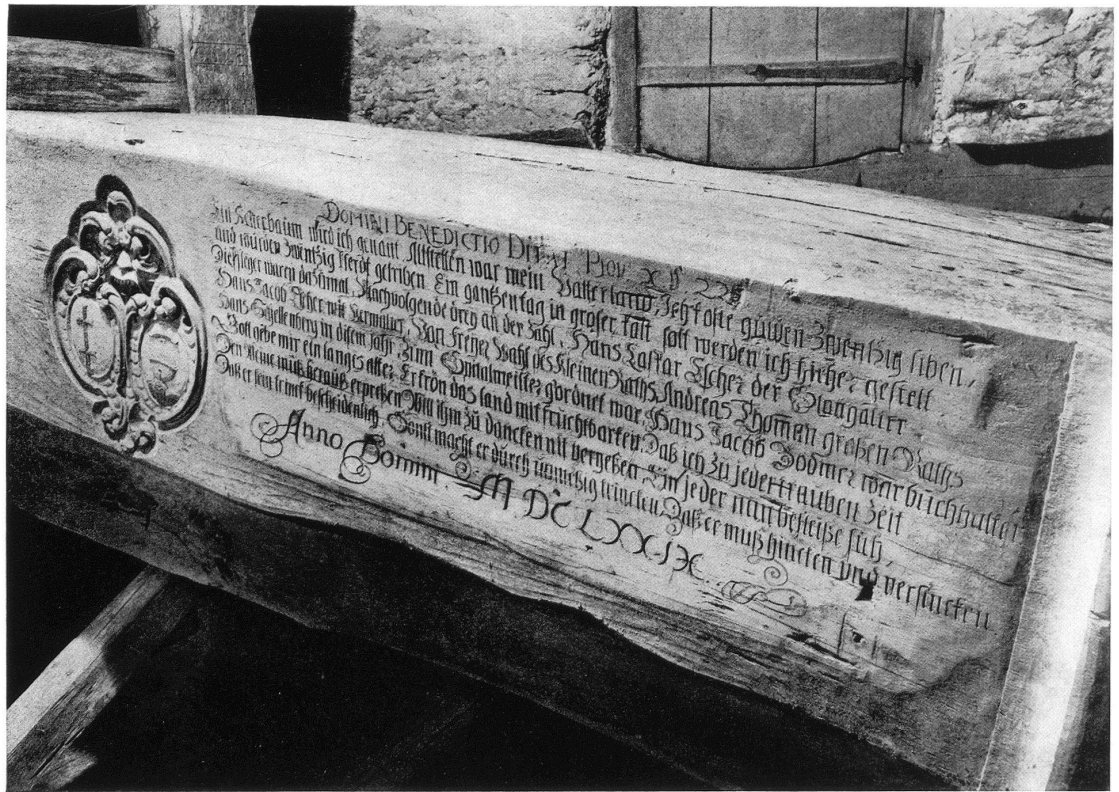 DOMINI BENEDICTIO DITAT Prov. X V 22
Ein Kelterbaum wird ich genant, Altstetten war mein Vatterland, Ich koste gulden zwentzig siben,
und wurden zwentzig Pferdt getriben. Ein gantzen tag in großer kält solt werden ich hieher gestelt
Die Pfleger waren dazumal, Nachvolgende drey an der Zahl, Hans Caspar Escher der Statthalter
Hans Jacob Escher Verwalter, Von Freyer Wahl des Kleinen Raths Andreas Thoman großen Raths
Hans Schellenberg in disem Jahr, Zum Spitalmeister gordnet war, Hans Jacob Bodmer war buchhalter
Gott gebe mir ein langes alter, Er krön das land mit fruchtbarkeit, Daß ich zu jeder trauben Zeit
Den Weine müß herauß erpreßen Will ihm zu dancken nit vergeßen, Ein jeder nun befleiße sich,
Daß er sein trinck bescheidenlich, Sonst macht er durch unmeßig trincken, Daß er muß hincken und versincken.
Anno Domini MDCLXXIX.